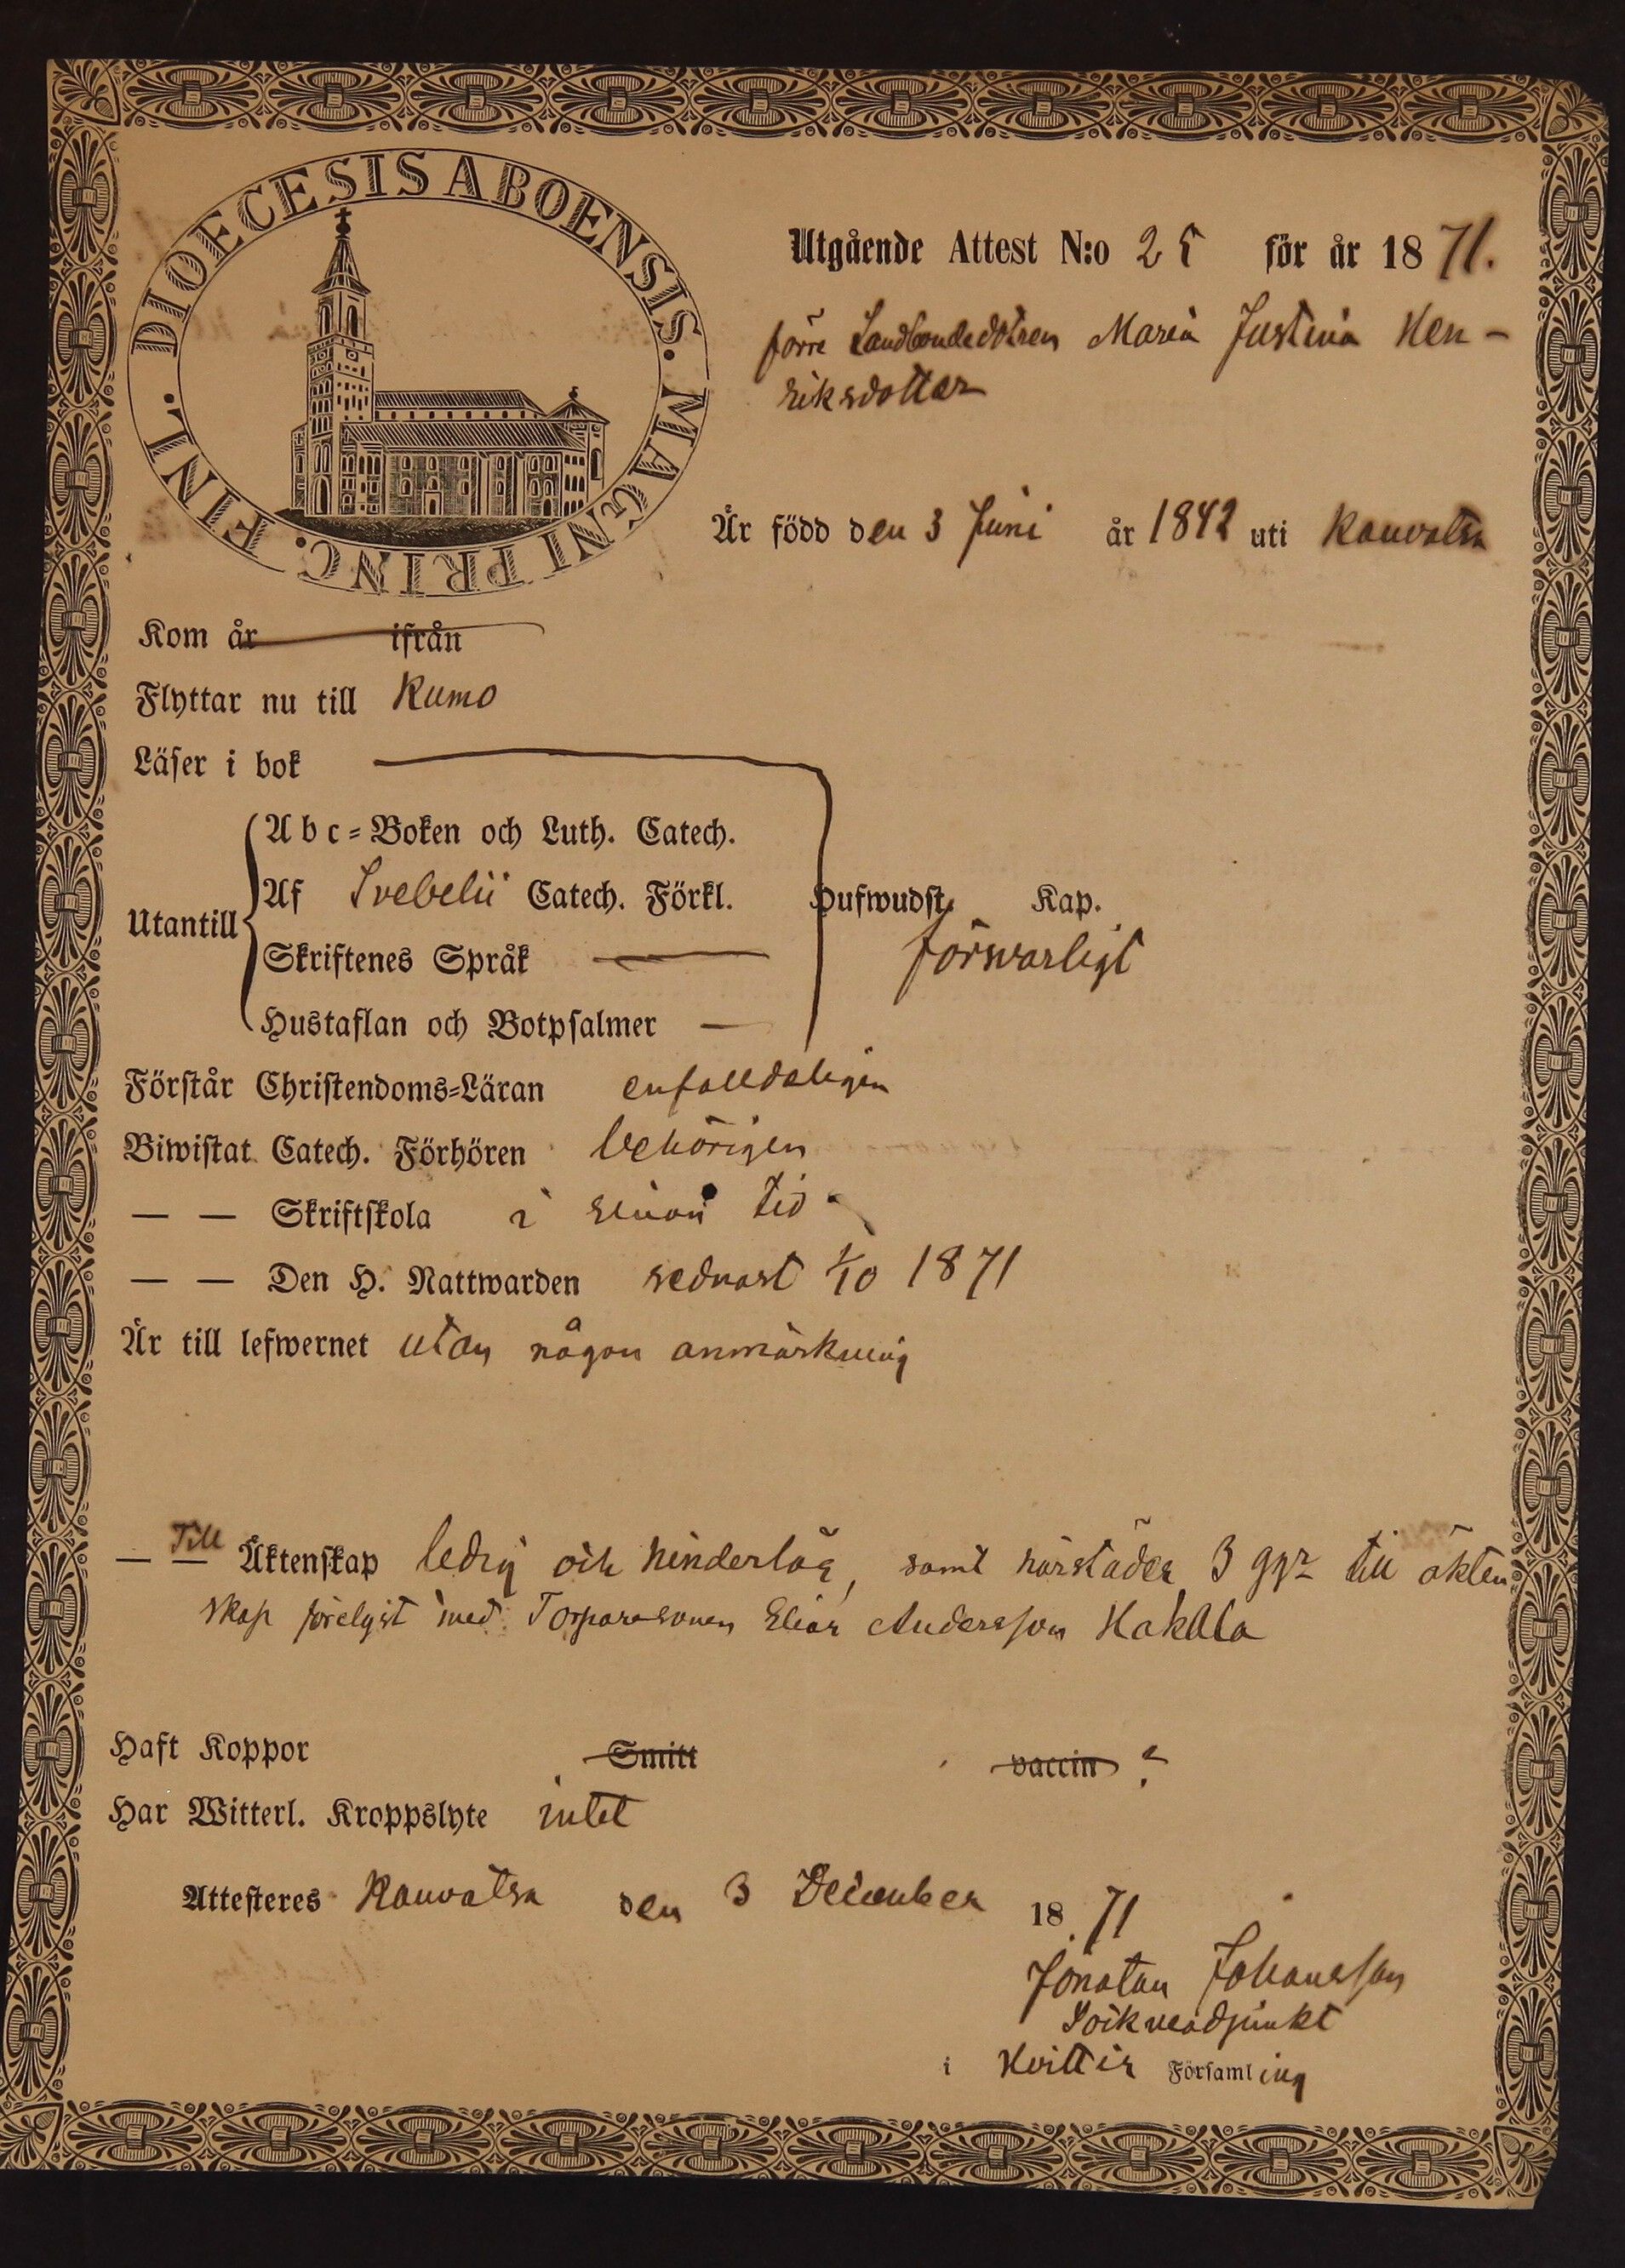 DIOECESIS ABOENSIS. MAGNI PRINC. FINL.
Utgående Attest N:o 25 för år 1871.
förre Landbondedotren Maria Justina Hen-
riksdotter
Är född den 3 Juni år 1842 uti Kauvatsa
Kom år ifrån
Flyttar nu till Kumo
Läser i bok
Abc-Boken och Luth. Catech.
Af Svebelii Catech. Förkl. Hufwudst. Kap.
Utantill
förswarligt
Skriftenes Språk —
Hustaflan och Botpsalmer —
Förstår Christendoms-Läran enfalldeligen
Biwistat Catech. Förhören behörigen
— — Skriftskola i sinom tid
— — Den H. Nattwarden sednast 1/10 1871
Är till lefwernet utan någon anmärkning
— — Till Äktenskap ledig och hinderlös, samt härstädes 3 ggr till äkten
skap förelyst med Torparesonen Elias Andersson Hakala
Haft Koppor Smitt vaccin ?
Har Witterl. Kroppslyte intet
Attesteres Kauvatsa den 3 December 1871
Jonatan Johansson
Sockneadjunkt
i Hvittis Församling